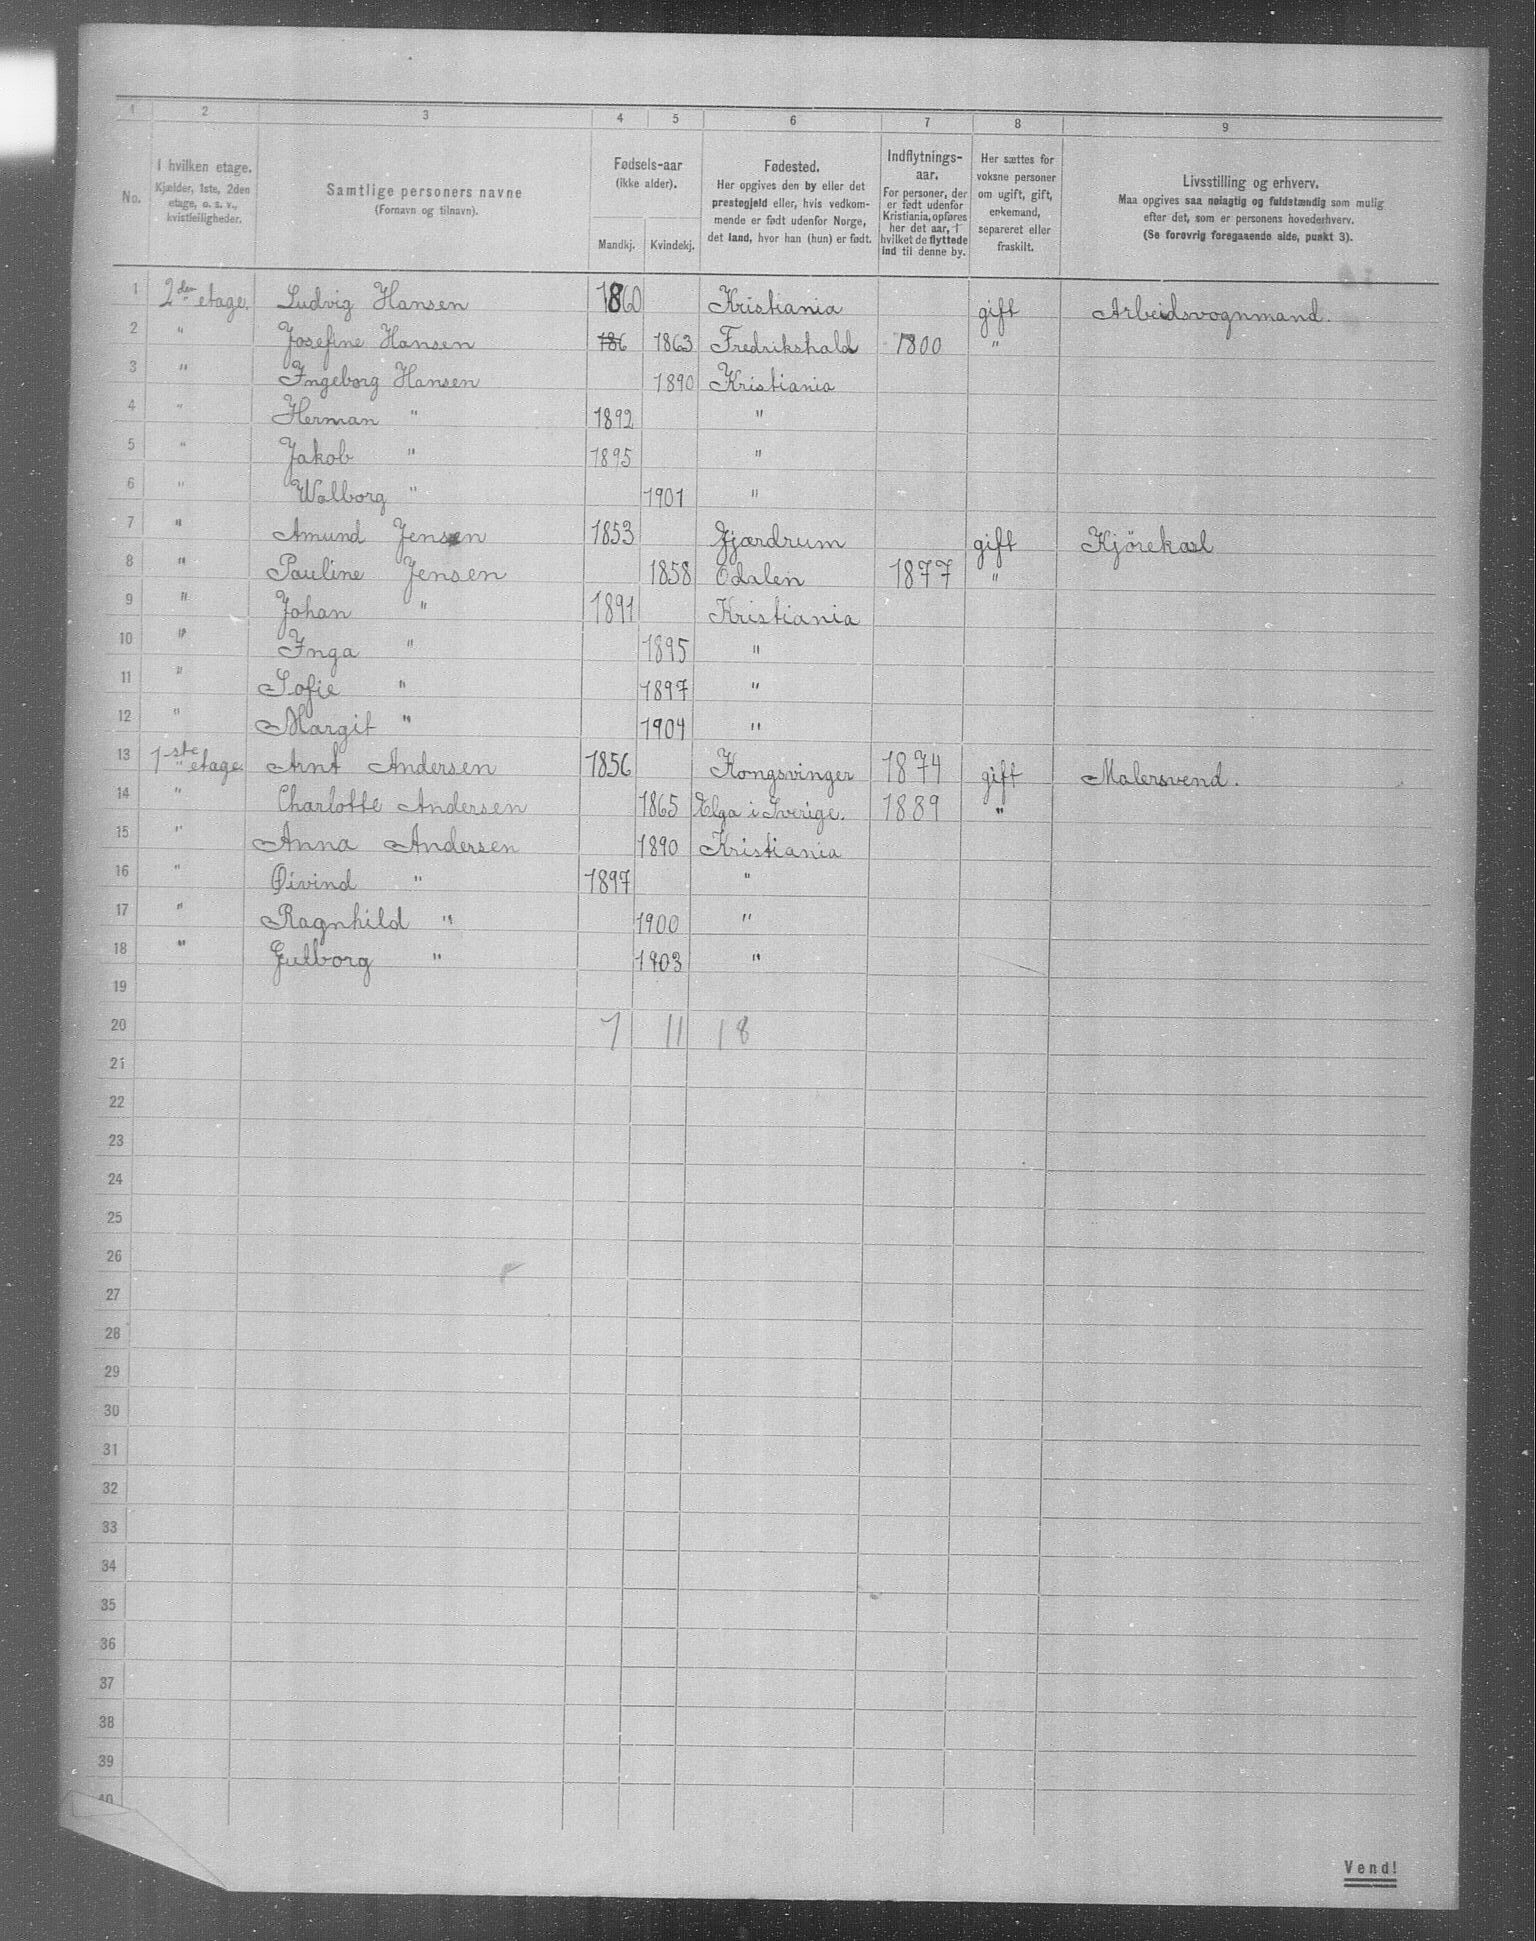 1 2 3 4 5 6 7 8 9
No.
I hvilken etage.
Kjælder, 1ste, 2den
etage, o. s. v.,
kvistleiligheder.
Samtlige personers navne
(Fornavn og tilnavn).
Fødsels-aar
(ikke alder).
Mandkj. Kvindekj.
Fødested.
Her opgives den by eller det
prestegjeld eller, hvis vedkom-
mende er født udenfor Norge,
det land, hvor han (hun) er født.
Indflytnings-
aar.
For personer, der
er født udenfor
Kristiania, opføres
her det aar, i
hvilket de flyttede
ind til denne by.
Her sættes for
voksne personer
om ugift, gift,
enkemand,
separeret eller
fraskilt.
Livsstilling og erhverv.
Maa opgives saa nøiagtig og fuldstændig som mulig
efter det, som er personens hovederhverv.
(Se forøvrig foregaaende side, punkt 3).
1 2den etage. Ludvig Hansen 1860 Kristiania gift Arbeidsvognmand.
2 " Josefine Hansen 186 1863 Fredrikshald 1800 "
3 " Ingeborg Hansen 1890 Kristiania
4 " Herman " 1892 "
5 " Jakob " 1895 "
6 " Walborg " 1901 "
7 " Amund Jensen 1853 Gjærdrum gift Kjörekarl
8 " Pauline Jensen 1858 Odalen 1877 "
9 " Johan " 1891 Kristiania
10 " Inga " 1895 "
11 " Sofie " 1897 "
12 " Margit " 1904 "
13 1ste etage. Arnt Andersen 1856 Kongsvinger 1874 gift Malersvend.
14 " Charlotte Andersen 1865 Elga i Sverige. 1889 "
15 " Anna Andersen 1890 Kristiania
16 " Øivind " 1897 "
17 " Ragnhild " 1900 "
18 " Gulborg " 1903 "
19
20 7 11 18
21
22
23
24
25
26
27
28
29
30
31
32
33
34
35
36
37
38
39
40
Vend!